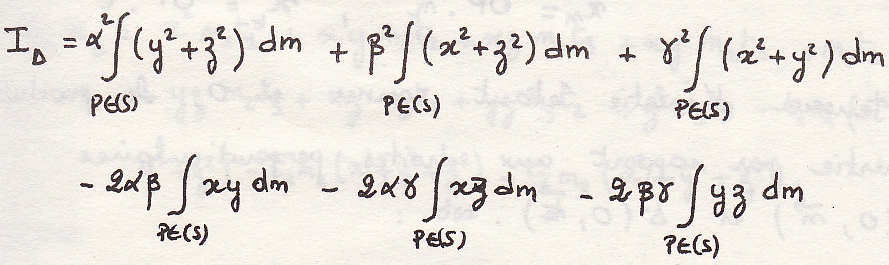 I_Δ = α² ∫_{P∈(S)} (y² + z²) dm + β² ∫_{P∈(S)} (x² + z²) dm + γ² ∫_{P∈(S)} (x² + y²) dm
- 2αβ ∫_{P∈(S)} xy dm - 2αγ ∫_{P∈(S)} xz dm - 2βγ ∫_{P∈(S)} yz dm